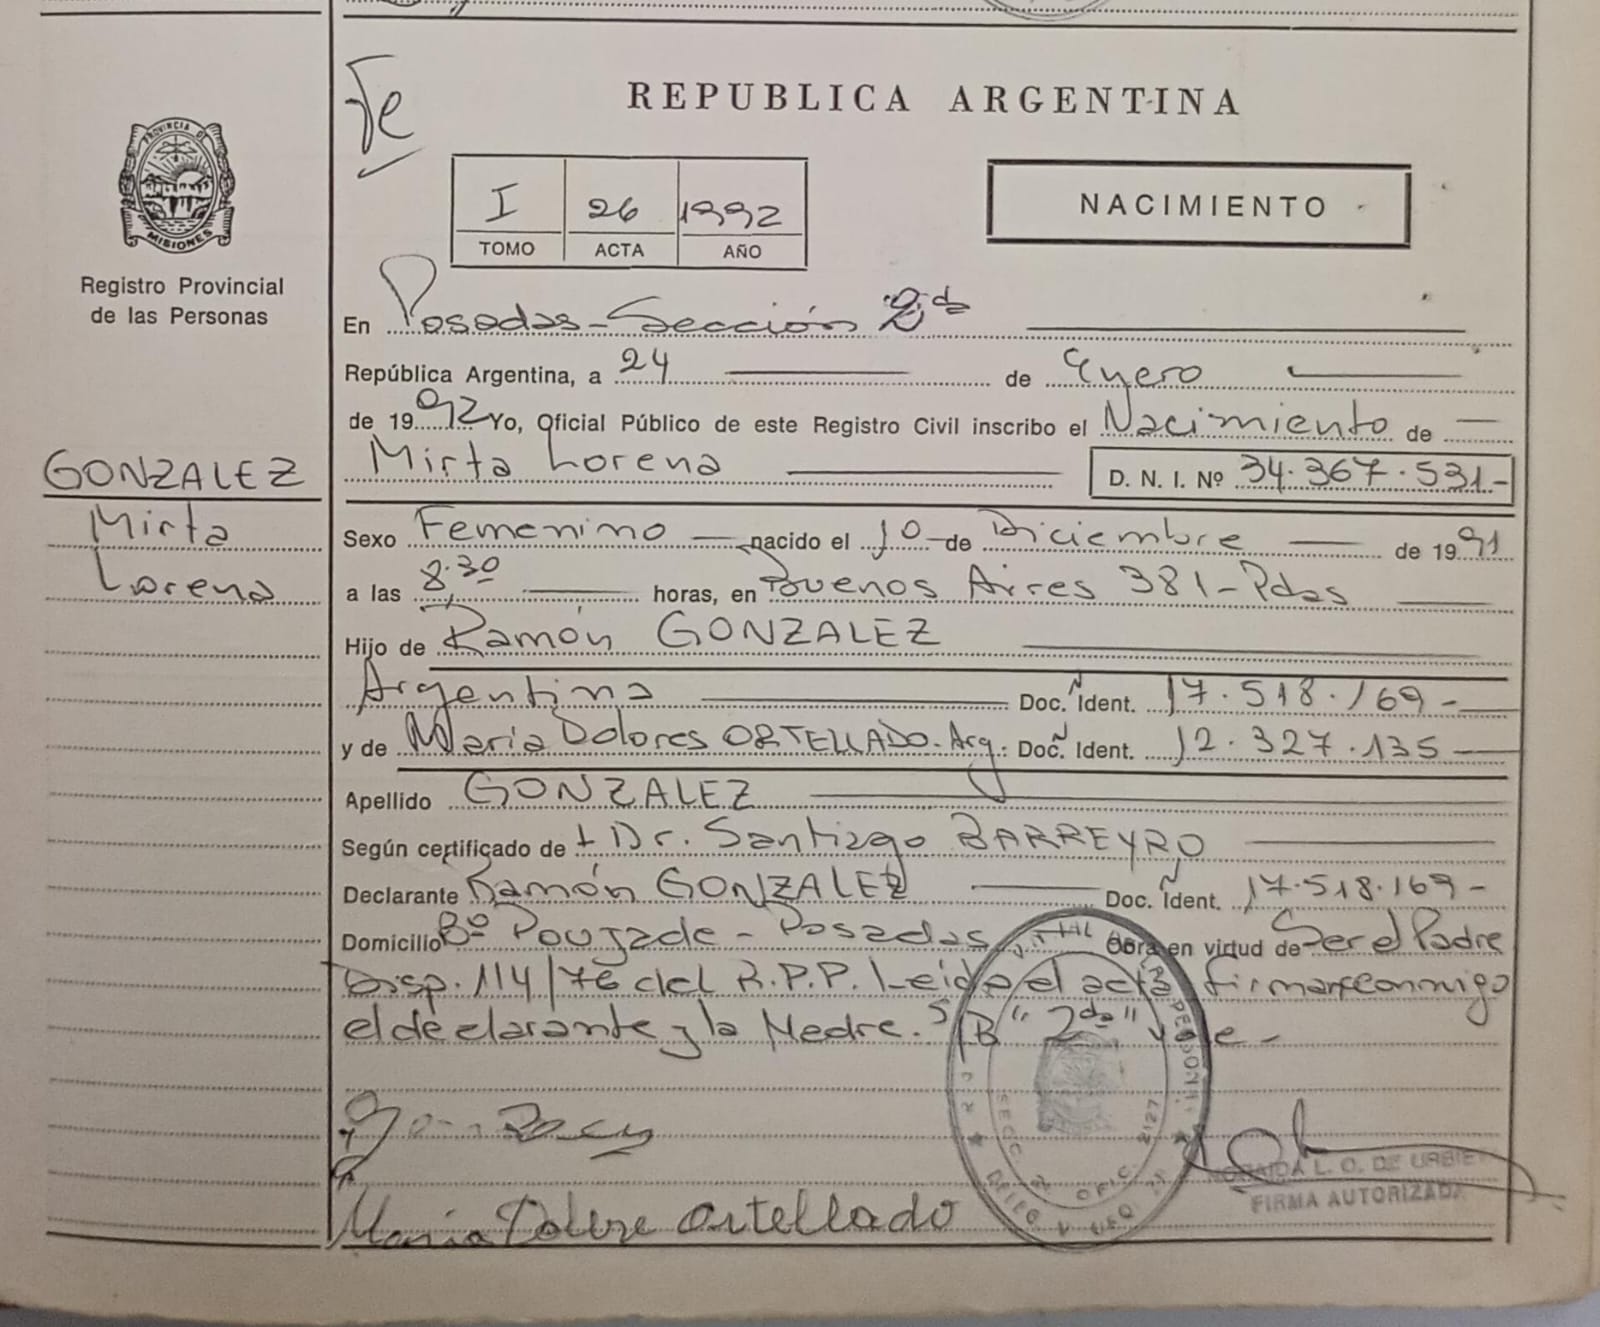 Fe
REPUBLICA ARGENTINA
PROVINCIA DE
MISIONES
Registro Provincial
de las Personas
I 26 1992
TOMO ACTA AÑO
NACIMIENTO
En Posadas - Sección 2da
República Argentina, a 24 de Enero
de 1992 Yo, Oficial Público de este Registro Civil inscribo el Nacimiento de
Mirta Lorena D. N. I. Nº 34.367.531-
GONZALEZ
Mirta
Lorena
Sexo Femenino nacido el 10 de Diciembre de 1991
a las 8,30 horas, en Buenos Aires 381 - Pdas
Hijo de Ramón GONZALEZ
Argentina Doc. Ident. 17.518.169-
y de María Dolores ORTELLADO. Arg. Doc. Ident. 12.327.135
Apellido GONZALEZ
Según certificado de Dr. Santiago BARREYRO
Declarante Ramón GONZALEZ Doc. Ident. 17.518.169-
Domicilio Bº Poujade - Posadas Obra en virtud de Ser el Padre
Disp. 114/76 del R.P.P. Leida el acta firman conmigo
el declarante y la Madre. S/B "2da" vale-
María Dolore Ortellado
L. O. DE URBIE
FIRMA AUTORIZADA